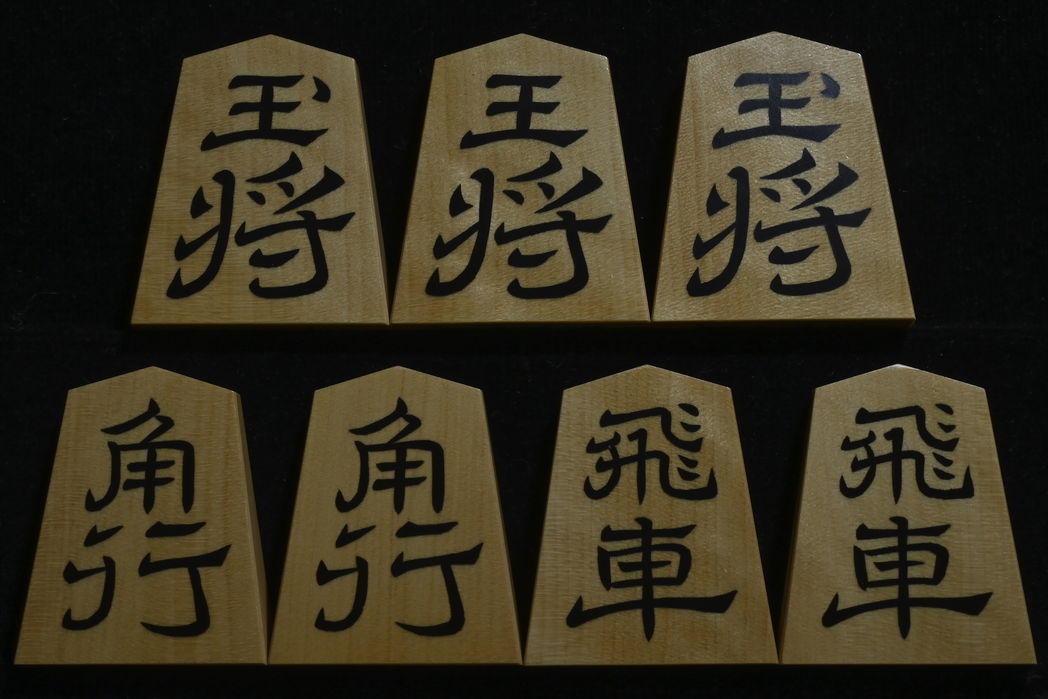 玉将 王将 玉将
角行 角行 飛車 飛車